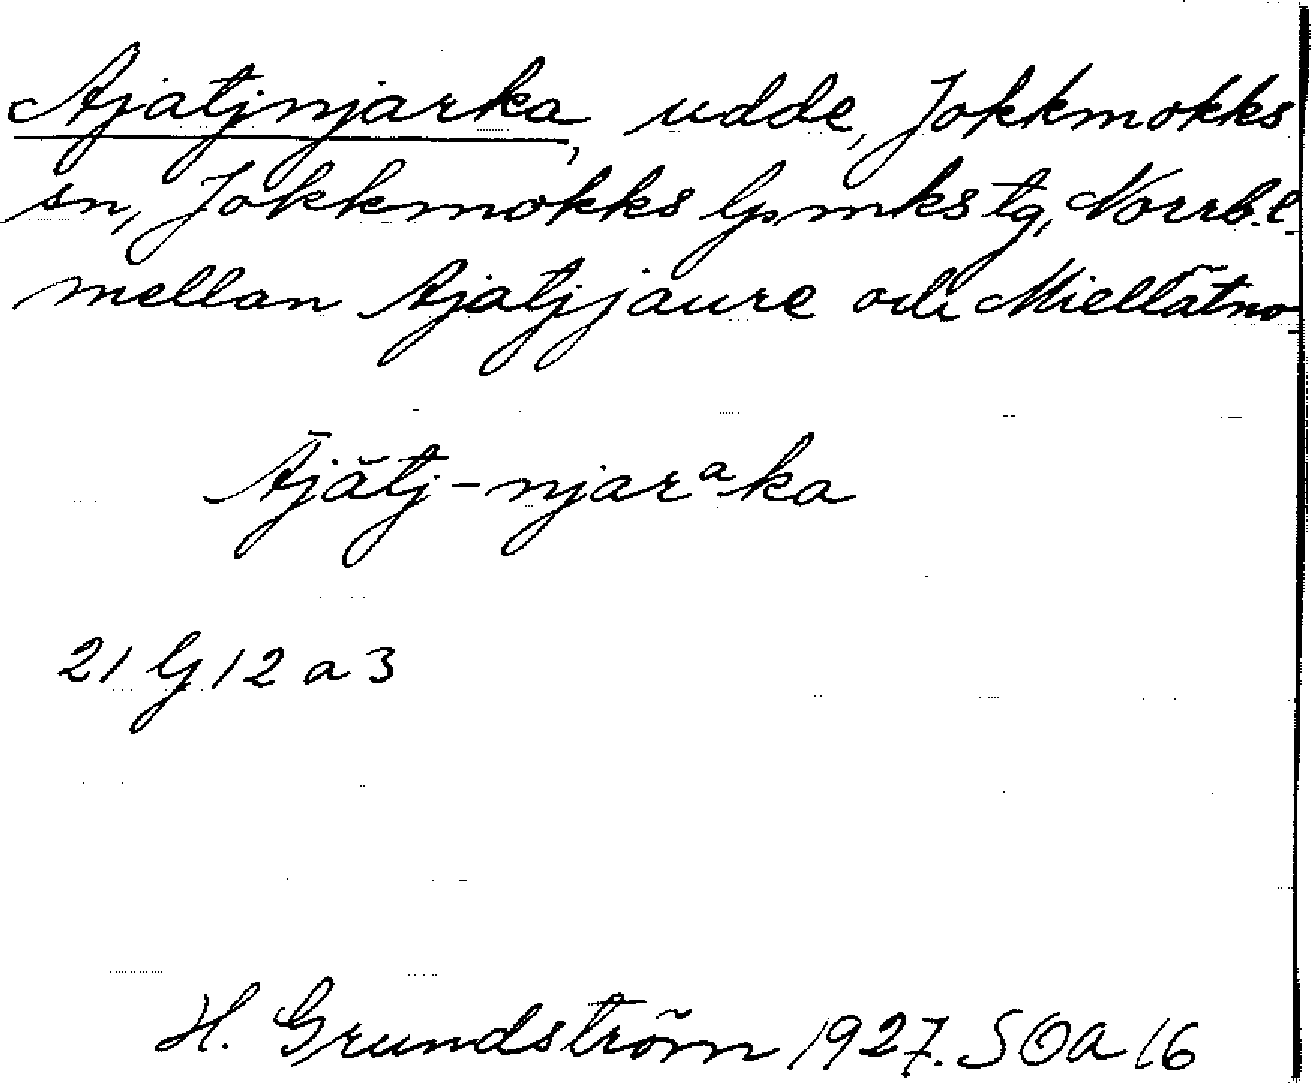 Ajatjnjarka, udde, Jokkmokks
sn, Jokkmokks lpmks tg, Norrb. l.
mellan Ajatjjaure och Miellätno
Ājătj-njarᵃka
21 G 12 a 3
H. Grundström 1927. SOA 16